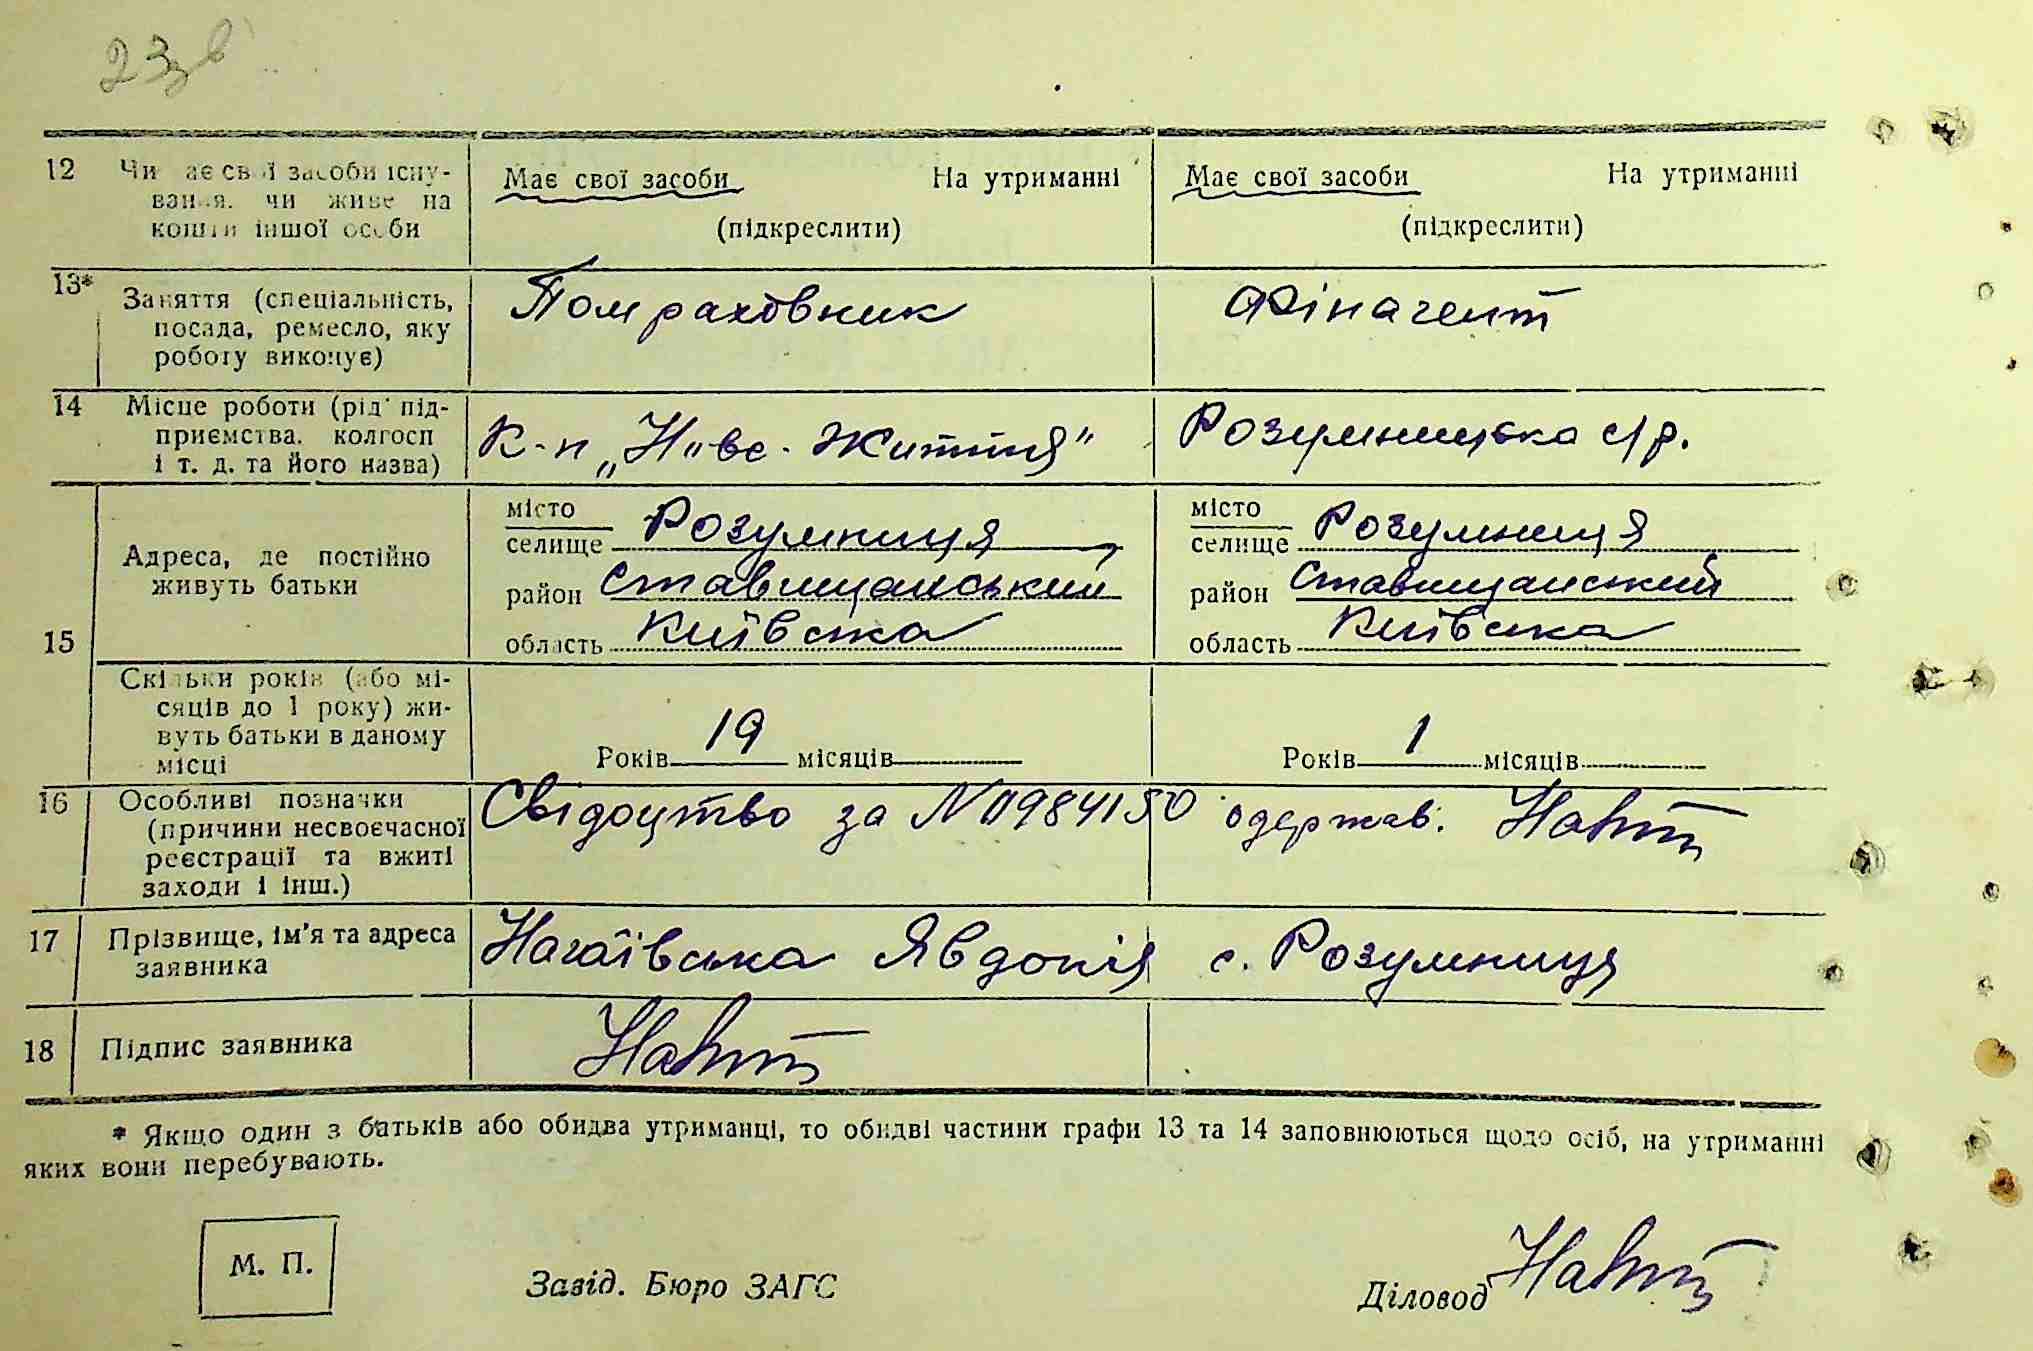 23зв
12 Чи має свої засоби існу- Має свої засоби На утриманні Має свої засоби На утриманні
вання. чи живе на
кошти іншої особи (підкреслити) (підкреслити)
13* Заняття (спеціальність, Помраховник Фінагент
посада, ремесло, яку
роботу виконує)
14 Місце роботи (рід під- К-п „Нове-Життя" Розумницька с/р.
приємства. колгосп
і т. д. та його назва)
15 Адреса, де постійно
живуть батьки
місто місто
селище Розумниця селище Розумниця
район Ставищанський район Ставищанський
область Київська область Київська
Скільки років (або мі-
сяців до 1 року) жи-
вуть батьки в даному
місці
Років 19 місяців Років 1 місяців
16 Особливі позначки Свідоцтво за N 0984150 одержав.
(причини несвоєчасної
реєстрації та вжиті
заходи і інш.)
17 Прізвище, ім'я та адреса Нагаївська Явдокія с. Розумниця
заявника
18 Підпис заявника
* Якщо один з батьків або обидва утриманці, то обидві частини графи 13 та 14 заповнюються щодо осіб, на утриманні
яких вони перебувають.
М. П.
Завід. Бюро ЗАГС
Діловод